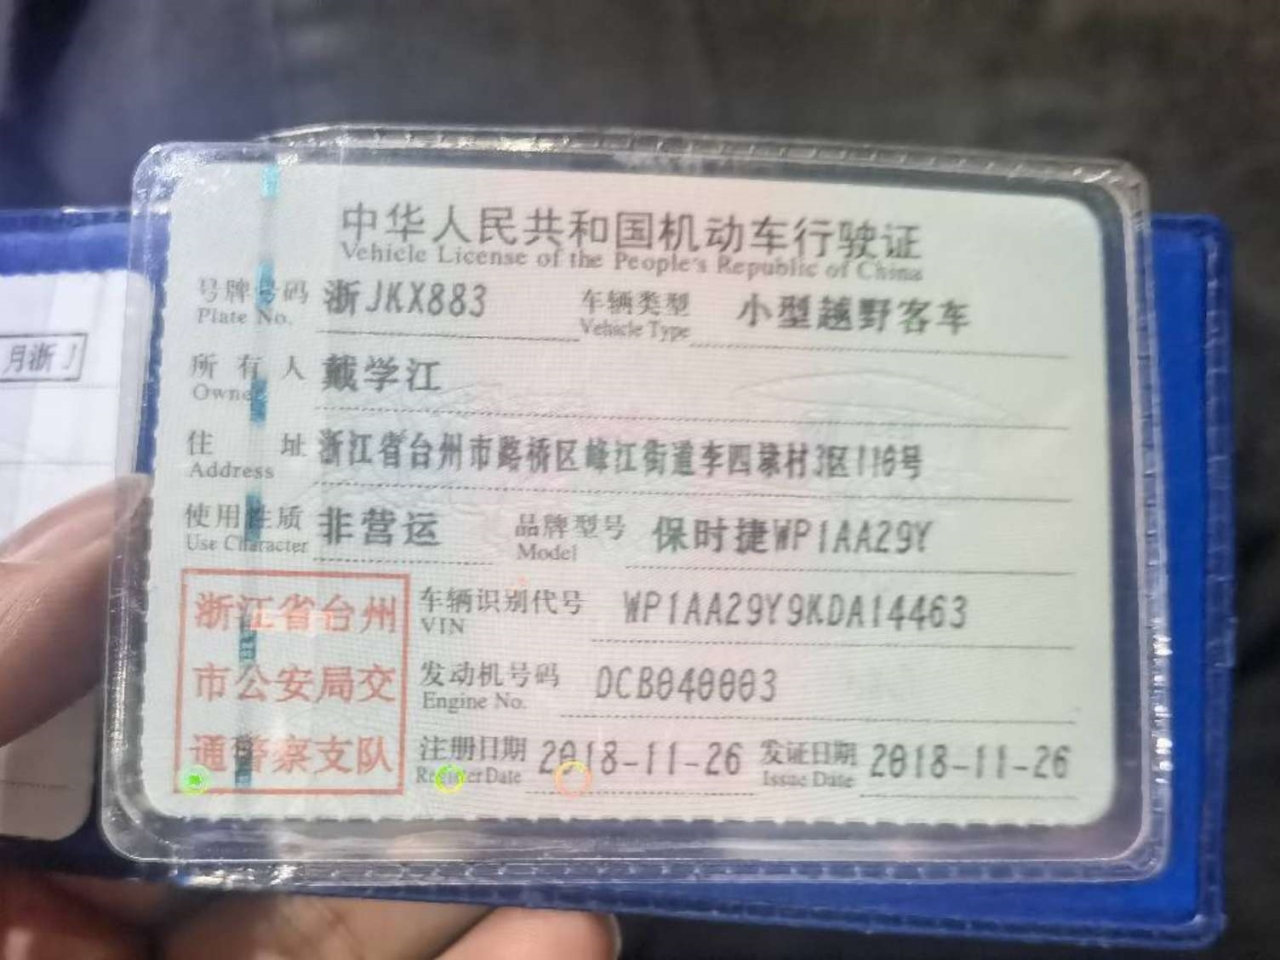 中华人民共和国机动车行驶证
Vehicle License of the People's Republic of China
号牌号码 浙JKX883 车辆类型 小型越野客车
Plate No. Vehicle Type
所有人 戴学江
Owner
住址 浙江省台州市路桥区峰江街道李四彔村3区116号
Address
使用性质 非营运 品牌型号 保时捷WP1AA29Y
Use Character Model
浙江省台州
市公安局交
通警察支队
车辆识别代号 WP1AA29Y9KDA14463
VIN
发动机号码 DCB040003
Engine No.
注册日期 2018-11-26 发证日期 2018-11-26
Register Date Issue Date
月浙J